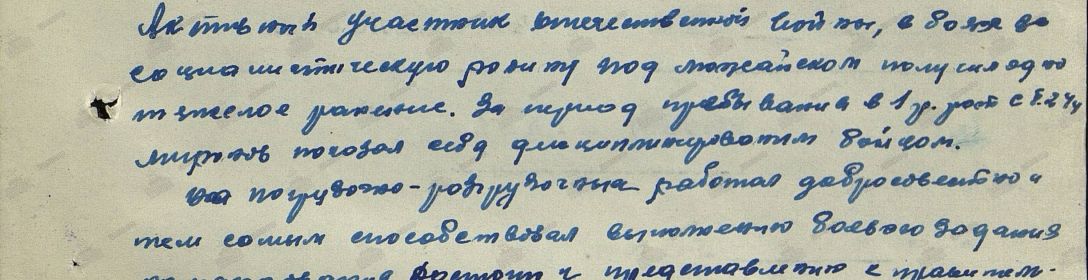 Активный участник отечественной войны, в боях за
социалистическую родину под Можайском получил одно
тяжелое ранение. За период пребывания в 1 р. роте с
Миронов показал себя дисциплинированым бойцом.
На погрузочно-разгрузочных работал добросовестно и
тем самым способствовал выполнению боевого задания
достоин к представлению к правитель-